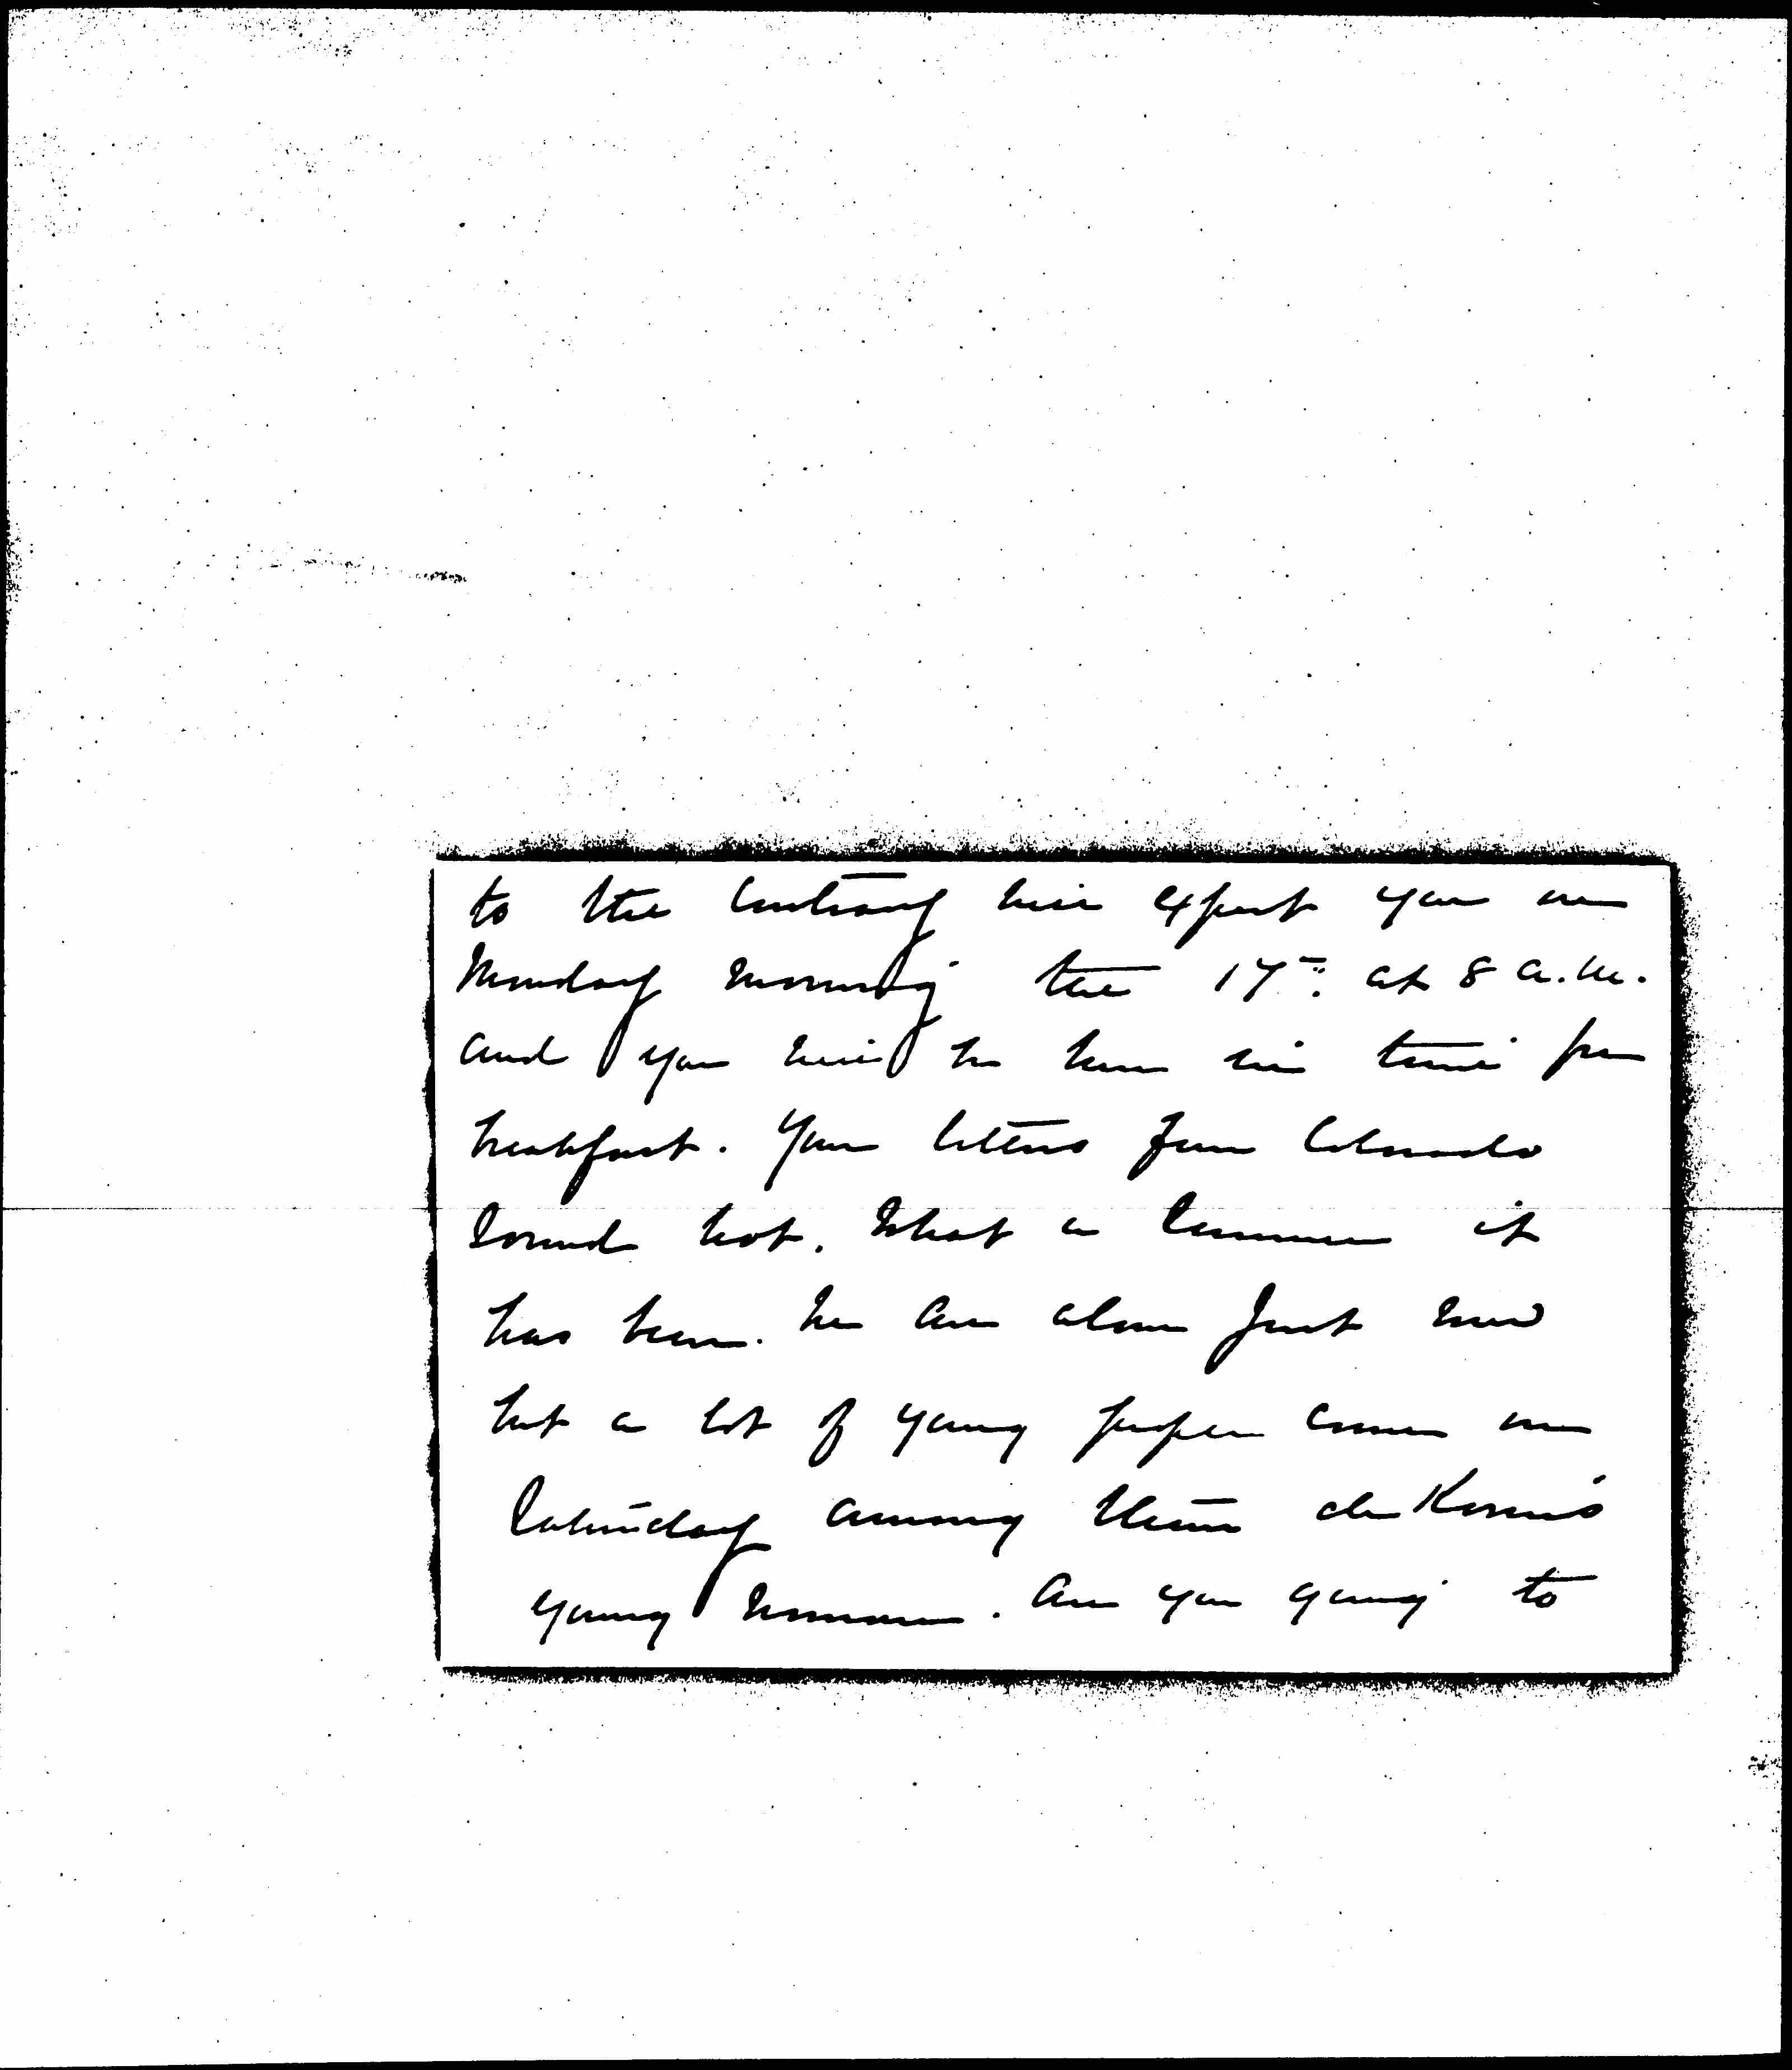 to the contrary will expect you on
Monday morning the 17th. at 8 a.m.
and you will be here in time for
breakfast. Your letters from Colorado
sound hot. What a summer it
has been. We are alone just now
but a lot of young people come on
Saturday among them de Koven's
young woman. Are you going to